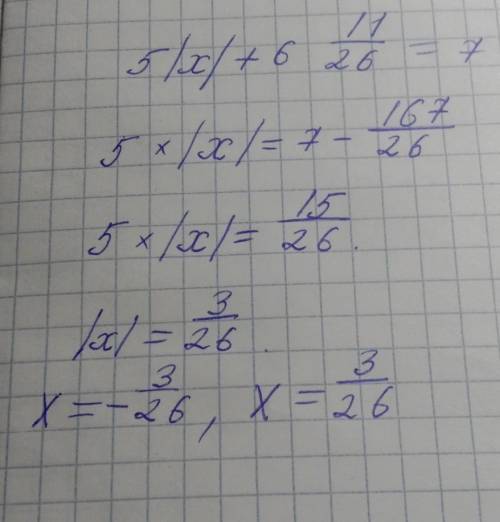 5|x| + 6 11/26 = 7
5 × |x| = 7 - 167/26
5 × |x| = 15/26.
|x| = 3/26.
x = - 3/26, x = 3/26